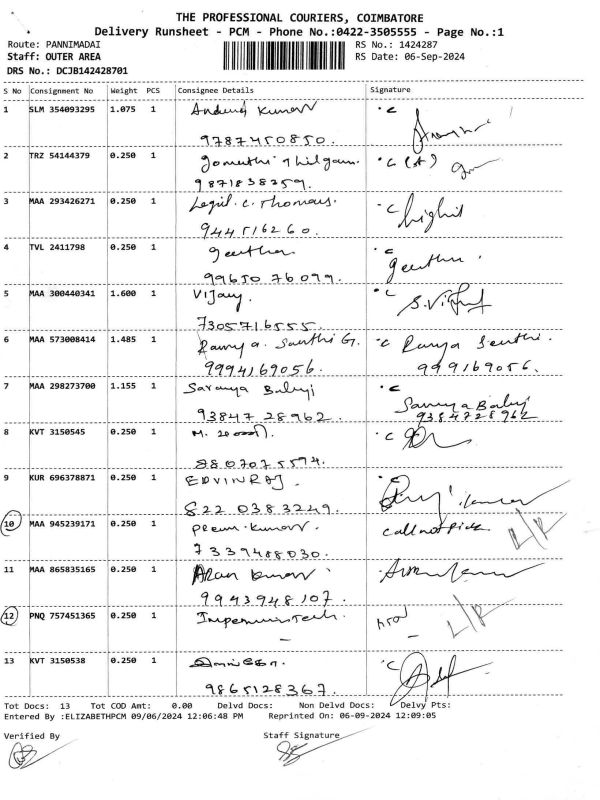 THE PROFESSIONAL COURIERS, COIMBATORE
Delivery Runsheet - PCM - Phone No.:0422-3505555 - Page No.:1
Route: PANNIMADAI RS No.: 1424287
Staff: OUTER AREA RS Date: 06-Sep-2024
DRS No.: DCJB142428701
S No Consignment No Weight PCS Consignee Details Signature
1 SLM 354093295 1.075 1 Kumar
9787450850.
2 TRZ 54144379 0.250 1 Gomathi Thilgam. C (A)
9871838259.
3 MAA 293426271 0.250 1 Legil. C. Thomas. C
944516260.
4 TVL 2411798 0.250 1 geetha C
99650 76099. geetha
5 MAA 300440341 1.600 1 Vijay. C
7305716555.
6 MAA 573008414 1.485 1 Ramya. Santhi G. C Ramya Senthi.
9994169056.999169056.
7 MAA 298273700 1.155 1 Saranya Balaji C
93847 28962. Saranya Balaji
9384728962
8 KVT 3150545 0.250 1 M. C
8807075594.
9 KUR 696378871 0.250 1 EDVINRAJ.
822 0383249.
10 MAA 945239171 0.250 1 Prem. Kumar. call not pick
7339488030.
11 MAA 865835165 0.250 1 Arun Kumar
9943948107.
12 PNQ 757451365 0.250 1
13 KVT 3150538 0.250 1 C
9865128367.
Tot Docs: 13 Tot COD Amt: 0.00 Delvd Docs: Non Delvd Docs: Delvy Pts:
Entered By :ELIZABETHPCM 09/06/2024 12:06:48 PM Reprinted On: 06-09-2024 12:09:05
Verified By Staff Signature